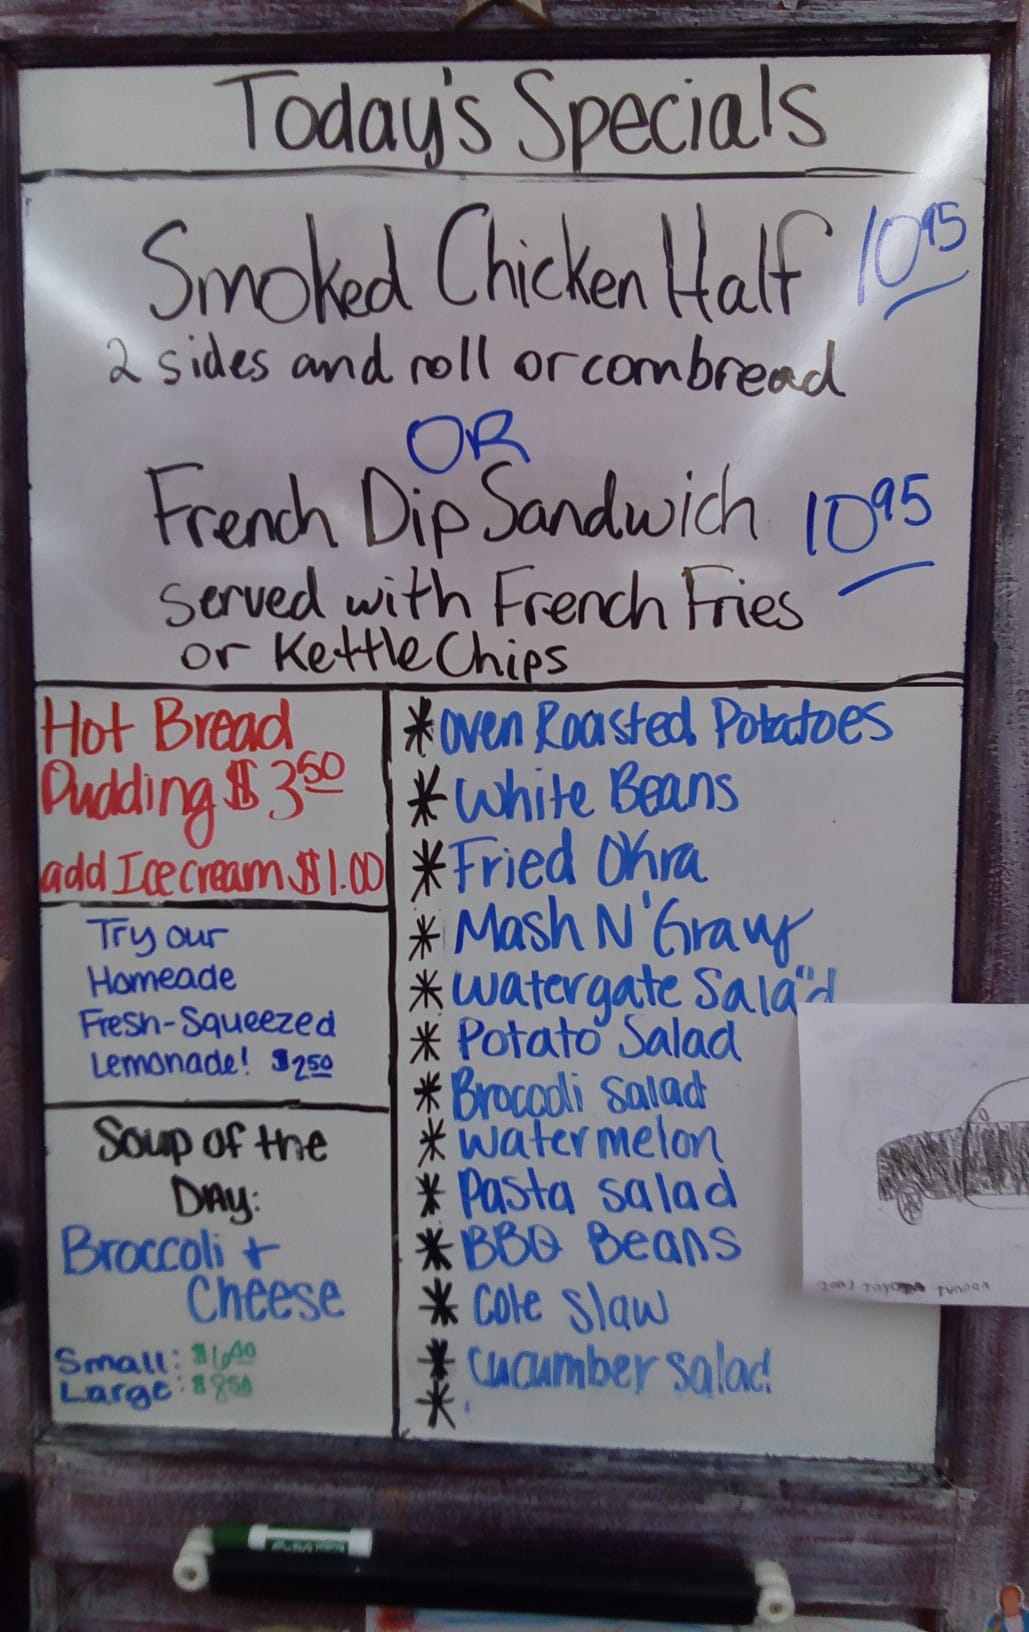 Today's Specials
Smoked Chicken Half 10 95
2 sides and roll or cornbread
OR
French Dip Sandwich 10 95
served with French Fries
or Kettle Chips
Hot Bread
Pudding $3 50
add Ice cream $1.00
Try our
Homeade
Fresh-Squeezed
Lemonade! $2 50
Soup of the
DAY:
Broccoli +
Cheese
Small: $6 00
Large: $8 50
* Oven Roasted Potatoes
* White Beans
* Fried Okra
* Mash N' Gravy
* Watergate Salad
* Potato Salad
* Broccoli salad
* Watermelon
* Pasta salad
* BBQ Beans
* Cole Slaw
* Cucumber salad
*
2003 TOYOTA TUNDRA